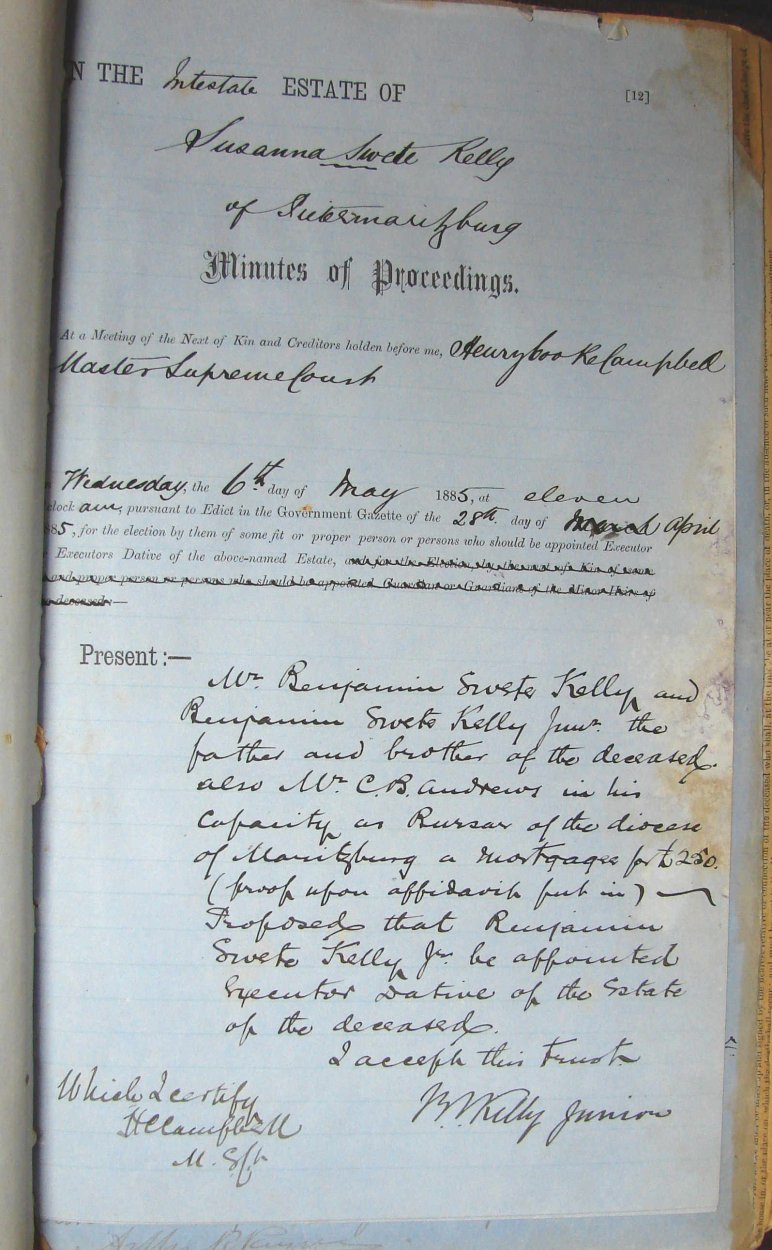 N THE Intestate ESTATE OF
[12]
Susanna Swete Kelly
of Pietermaritzburg
Minutes of Proceedings.
At a Meeting of the Next of Kin and Creditors holden before me, Henry Cooke Campbell
Master Supreme Court
Wednesday, the 6th day of May 1885, at eleven
clock am, pursuant to Edict in the Government Gazette of the 28th day of March April
885, for the election by them of some fit or proper person or persons who should be appointed Executor
Executors Dative of the above-named Estate, and for the Election by the next of Kin of some
and proper person or persons who should be appointed Guardian or Guardians of the Minor Heirs of
deceased:—
Present:—
Mr. Benjamin Swete Kelly and
Benjamin Swete Kelly Junr. the
father and brother of the deceased
also Mr. C.B. Andrews in his
Capacity as Bursar of the diocese
of Maritzburg a mortgagee for £250.
(proof upon affidavit put in) —
Proposed that Benjamin
Swete Kelly Jr. be appointed
Executor Dative of the Estate
of the deceased.
I accept this trust.
Which I certify
HCCampbell
M. S. Ct
B S Kelly Junior